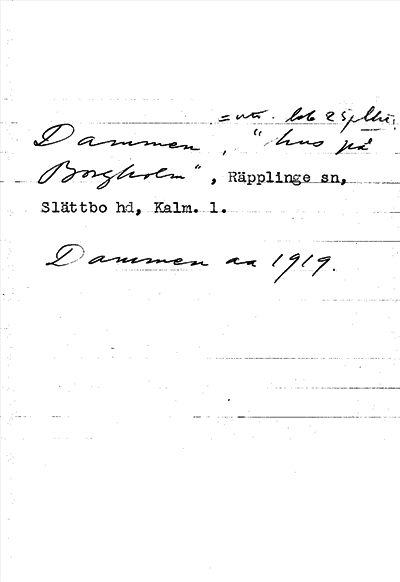 = utr.
Dammen, "hus på
Borgholm", Räpplinge sn,
Slättbo hd, Kalm. l.
Dammen aa 1919.